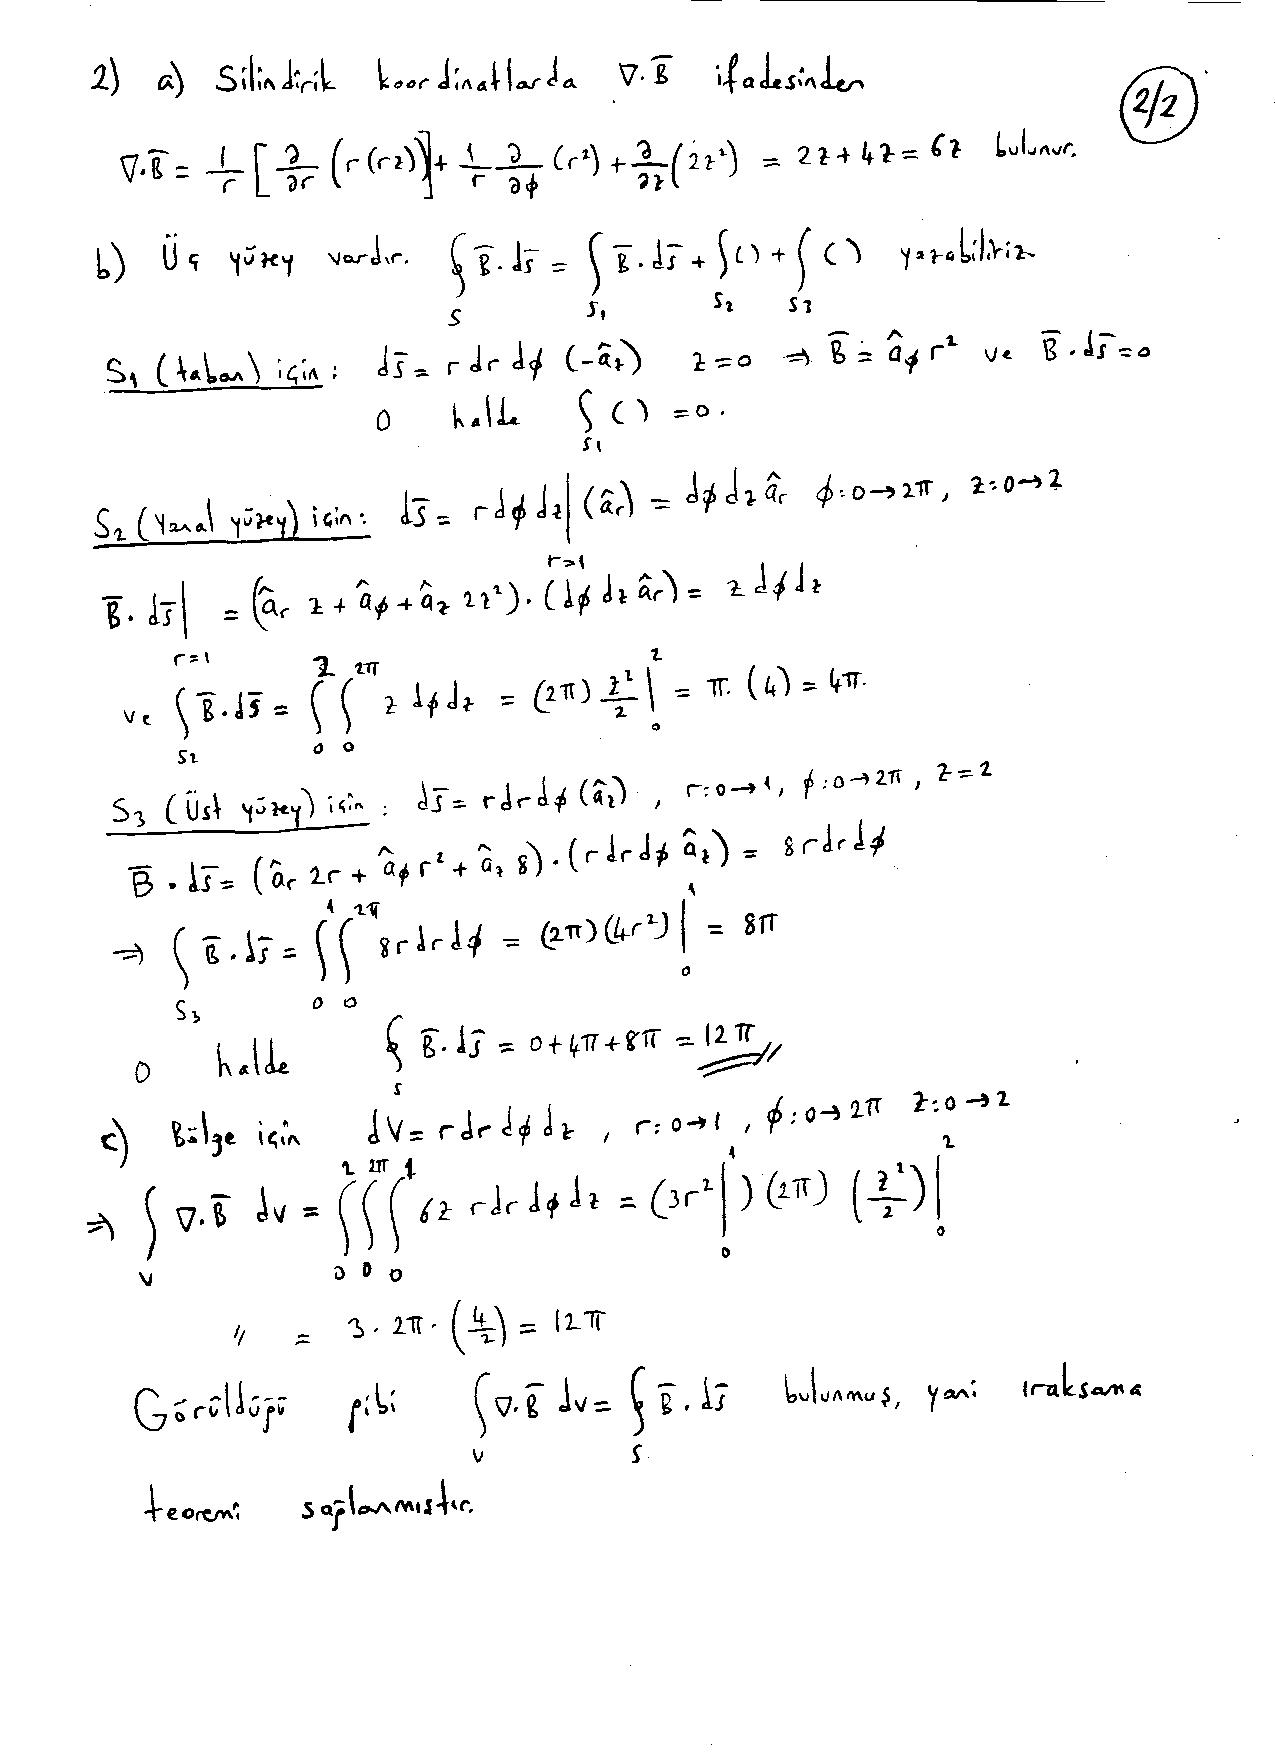 2) a) Silindirik koordinatlarda ∇·B̄ ifadesinden
2/2
∇·B̄ = 1/r [∂/∂r (r(rz))] + 1/r ∂/∂ϕ (r²) + ∂/∂z (2z²) = 2z + 4z = 6z bulunur.
b) Üç yüzey vardır. ∮_S B̄·ds̄ = ∫_S₁ B̄·ds̄ + ∫_S₂ ( ) + ∫_S₃ ( ) yazabiliriz
S₁ (taban) için: ds̄ = r dr dϕ (-â_z) z=0 ⇒ B̄ = â_ϕ r² ve B̄·ds̄ = 0
O halde ∫_S₁ ( ) = 0.
S₂ (Yanal yüzey) için: ds̄ = r dϕ dz|_r=1 (â_r) = dϕ dz â_r ϕ: 0→2π, z: 0→2
B̄·ds̄|_r=1 = (â_r z + â_ϕ + â_z 2z²)·(dϕ dz â_r) = z dϕ dz
ve ∫_S₂ B̄·ds̄ = ∫₀² ∫₀^2π z dϕ dz = (2π) z²/2 |₀² = π.(4) = 4π.
S₃ (Üst yüzey) için: ds̄ = r dr dϕ (â_z), r: 0→1, ϕ: 0→2π, z=2
B̄·ds̄ = (â_r 2r + â_ϕ r² + â_z 8)·(r dr dϕ â_z) = 8 r dr dϕ
⇒ ∫_S₃ B̄·ds̄ = ∫₀¹ ∫₀^2π 8 r dr dϕ = (2π)(4r²)|₀¹ = 8π
O halde ∮_S B̄·ds̄ = 0 + 4π + 8π = 12π //
c) Bölge için dV = r dr dϕ dz, r: 0→1, ϕ: 0→2π z: 0→2
⇒ ∫_V ∇·B̄ dv = ∫₀² ∫₀^2π ∫₀¹ 6z r dr dϕ dz = (3r²|₀¹)(2π)(z²/2)|₀²
" = 3·2π·(4/2) = 12π
Görüldüğü gibi ∫_V ∇·B̄ dv = ∮_S B̄·ds̄ bulunmuş, yani ıraksama
teoremi sağlanmıştır.